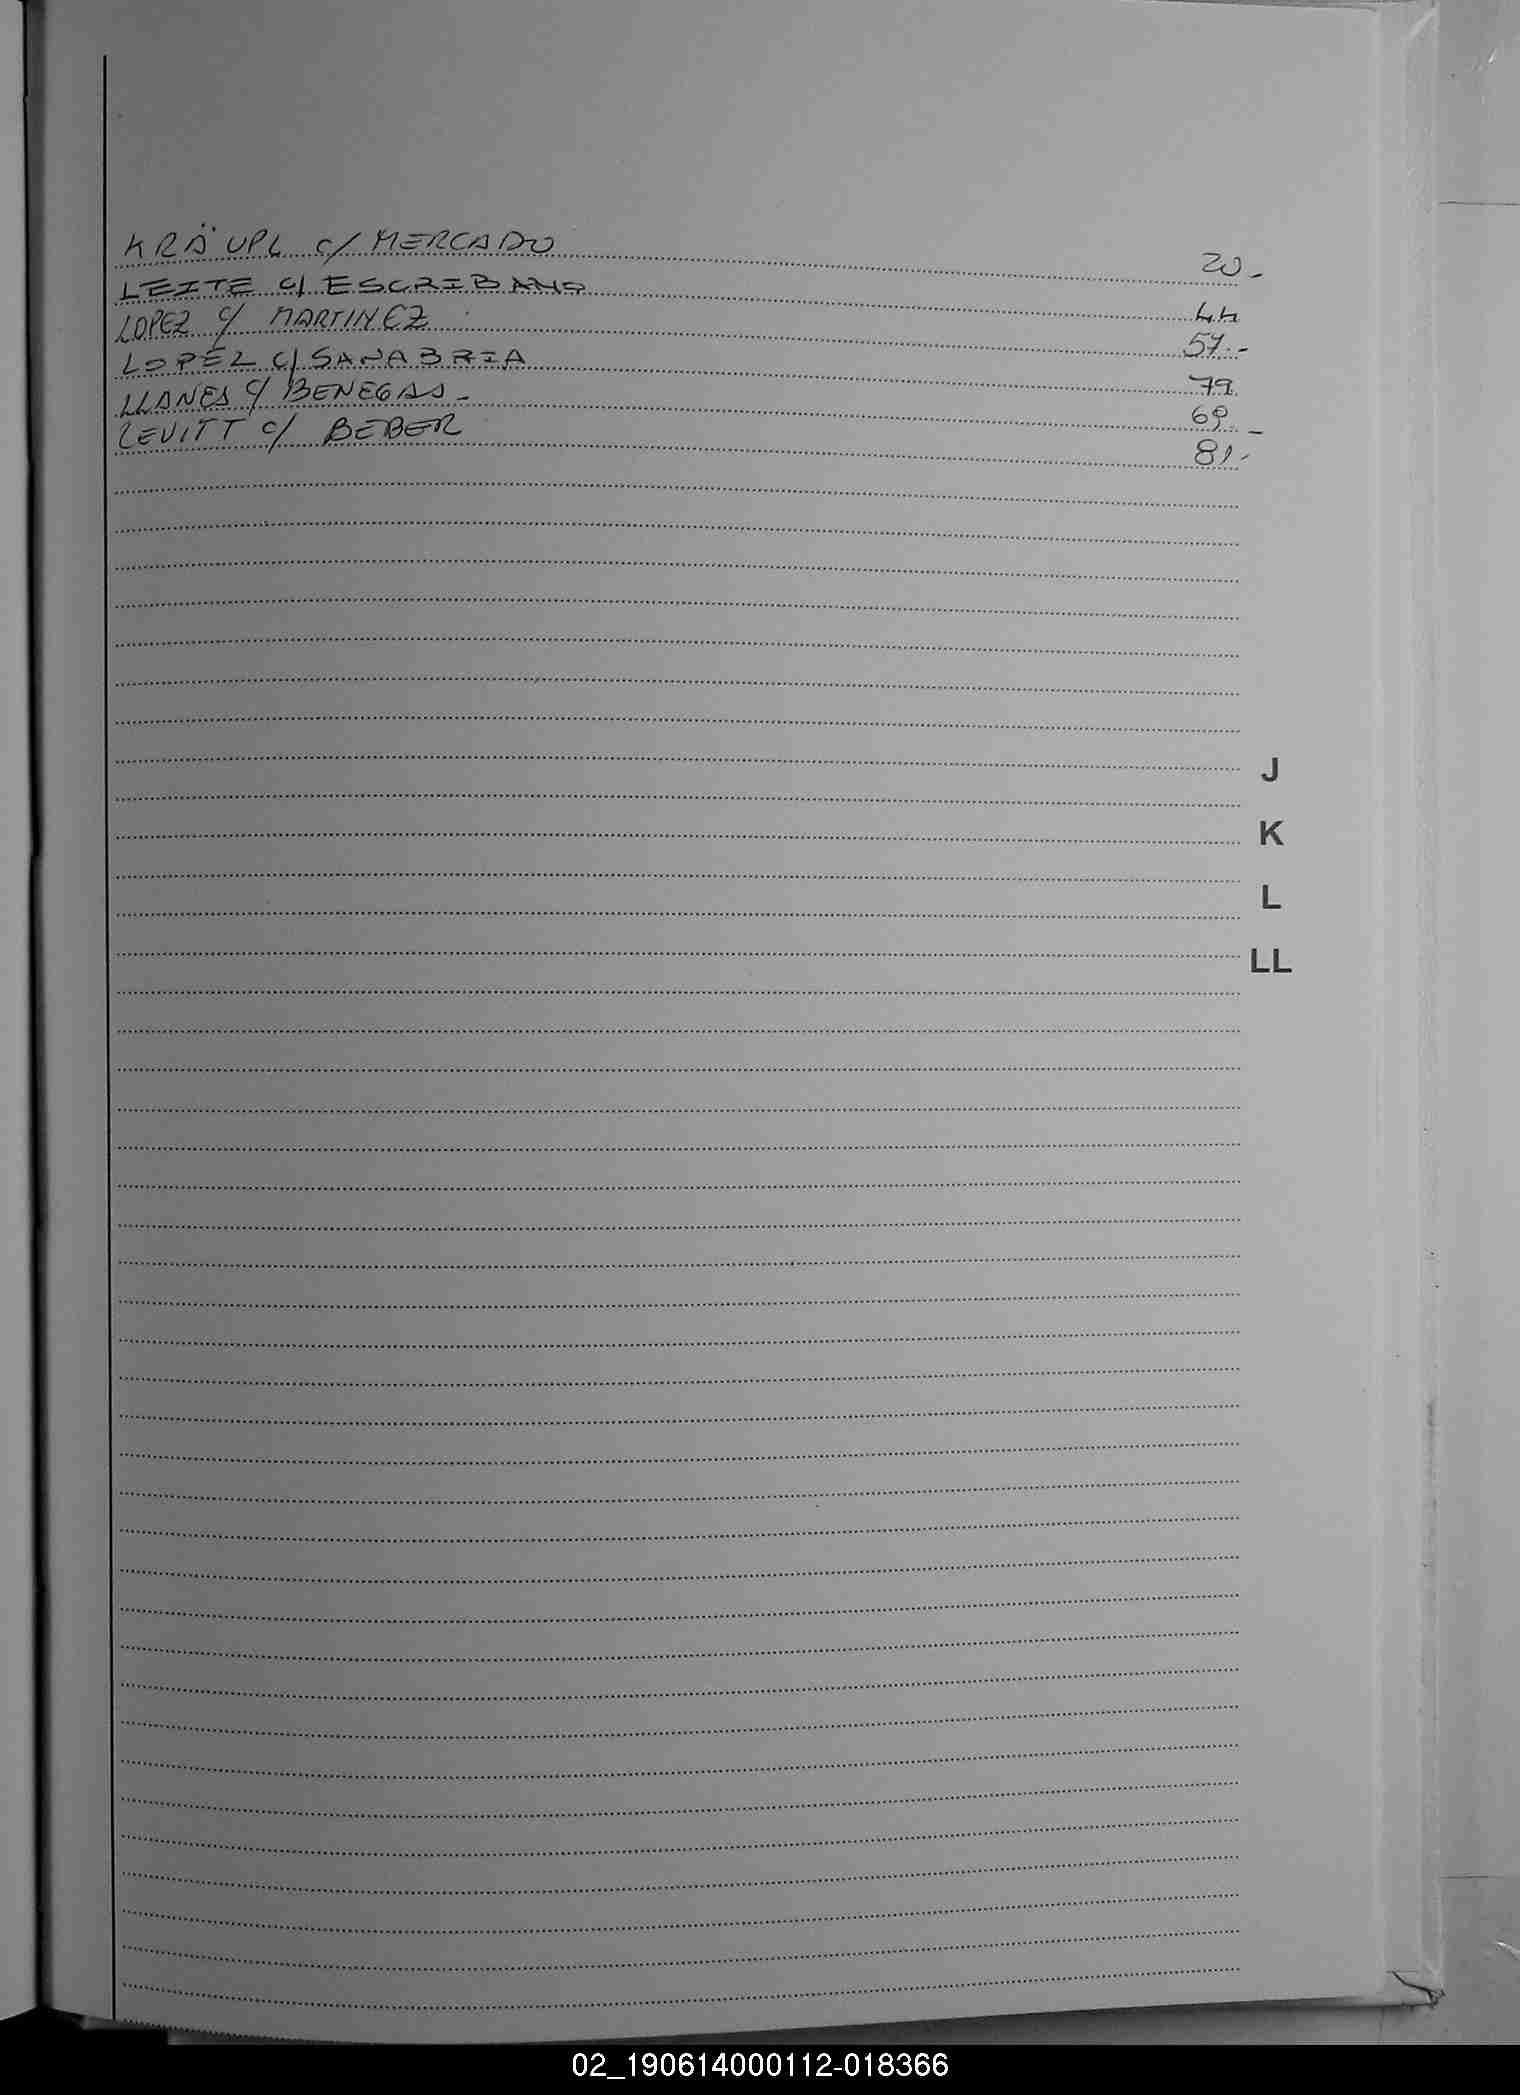 KRÄUPL c/ MERCADO 20-
LEITE c/ ESCRIBANO 44
LOPEZ c/ MARTINEZ 57.-
LOPEZ c/ SANABRIA 79.
LLANES c/ BENEGAS - 69.-
LEVITT c/ BEBER 81.-
J
K
L
LL
02_190614000112-018366